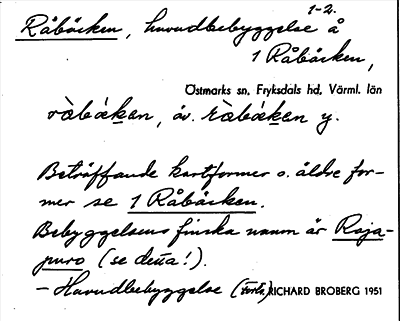 1-2.
Råbäcken, huvudbebyggelse å
1 Råbäcken,
Östmarks sn, Fryksdals hd, Värml. län
ràbäken, äv. ràbäken y.
Beträffande kartformer o. äldre for-
mer se 1 Råbäcken.
Bebyggelsens finska namn är Raja-
puro (se detta!).
– Huvudbebyggelse (forts.) RICHARD BROBERG 1951